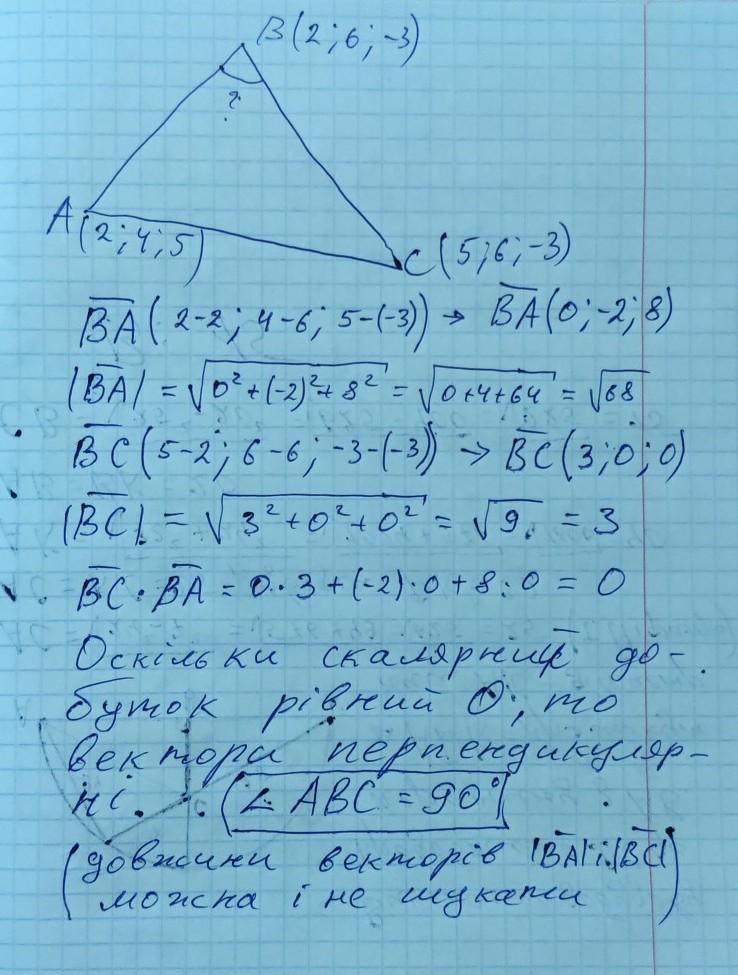 B(2;6;-3)
?
A(2;4;5)
C(5;6;-3)
B͞A͞(2-2; 4-6; 5-(-3)) → B͞A͞(0;-2;8)
|B͞A͞| = √(0²+(-2)²+8²) = √(0+4+64) = √68
B͞C͞(5-2; 6-6; -3-(-3)) → B͞C͞(3;0;0)
|B͞C͞| = √(3²+0²+0²) = √9 = 3
B͞C͞·B͞A͞ = 0·3+(-2)·0+8·0 = 0
Оскільки скалярний до-
буток рівний 0, то
вектори перпендикуляр-
ні. ∠ABC = 90°
(довжини векторів |B͞A͞| і |B͞C͞|
можна і не шукати)